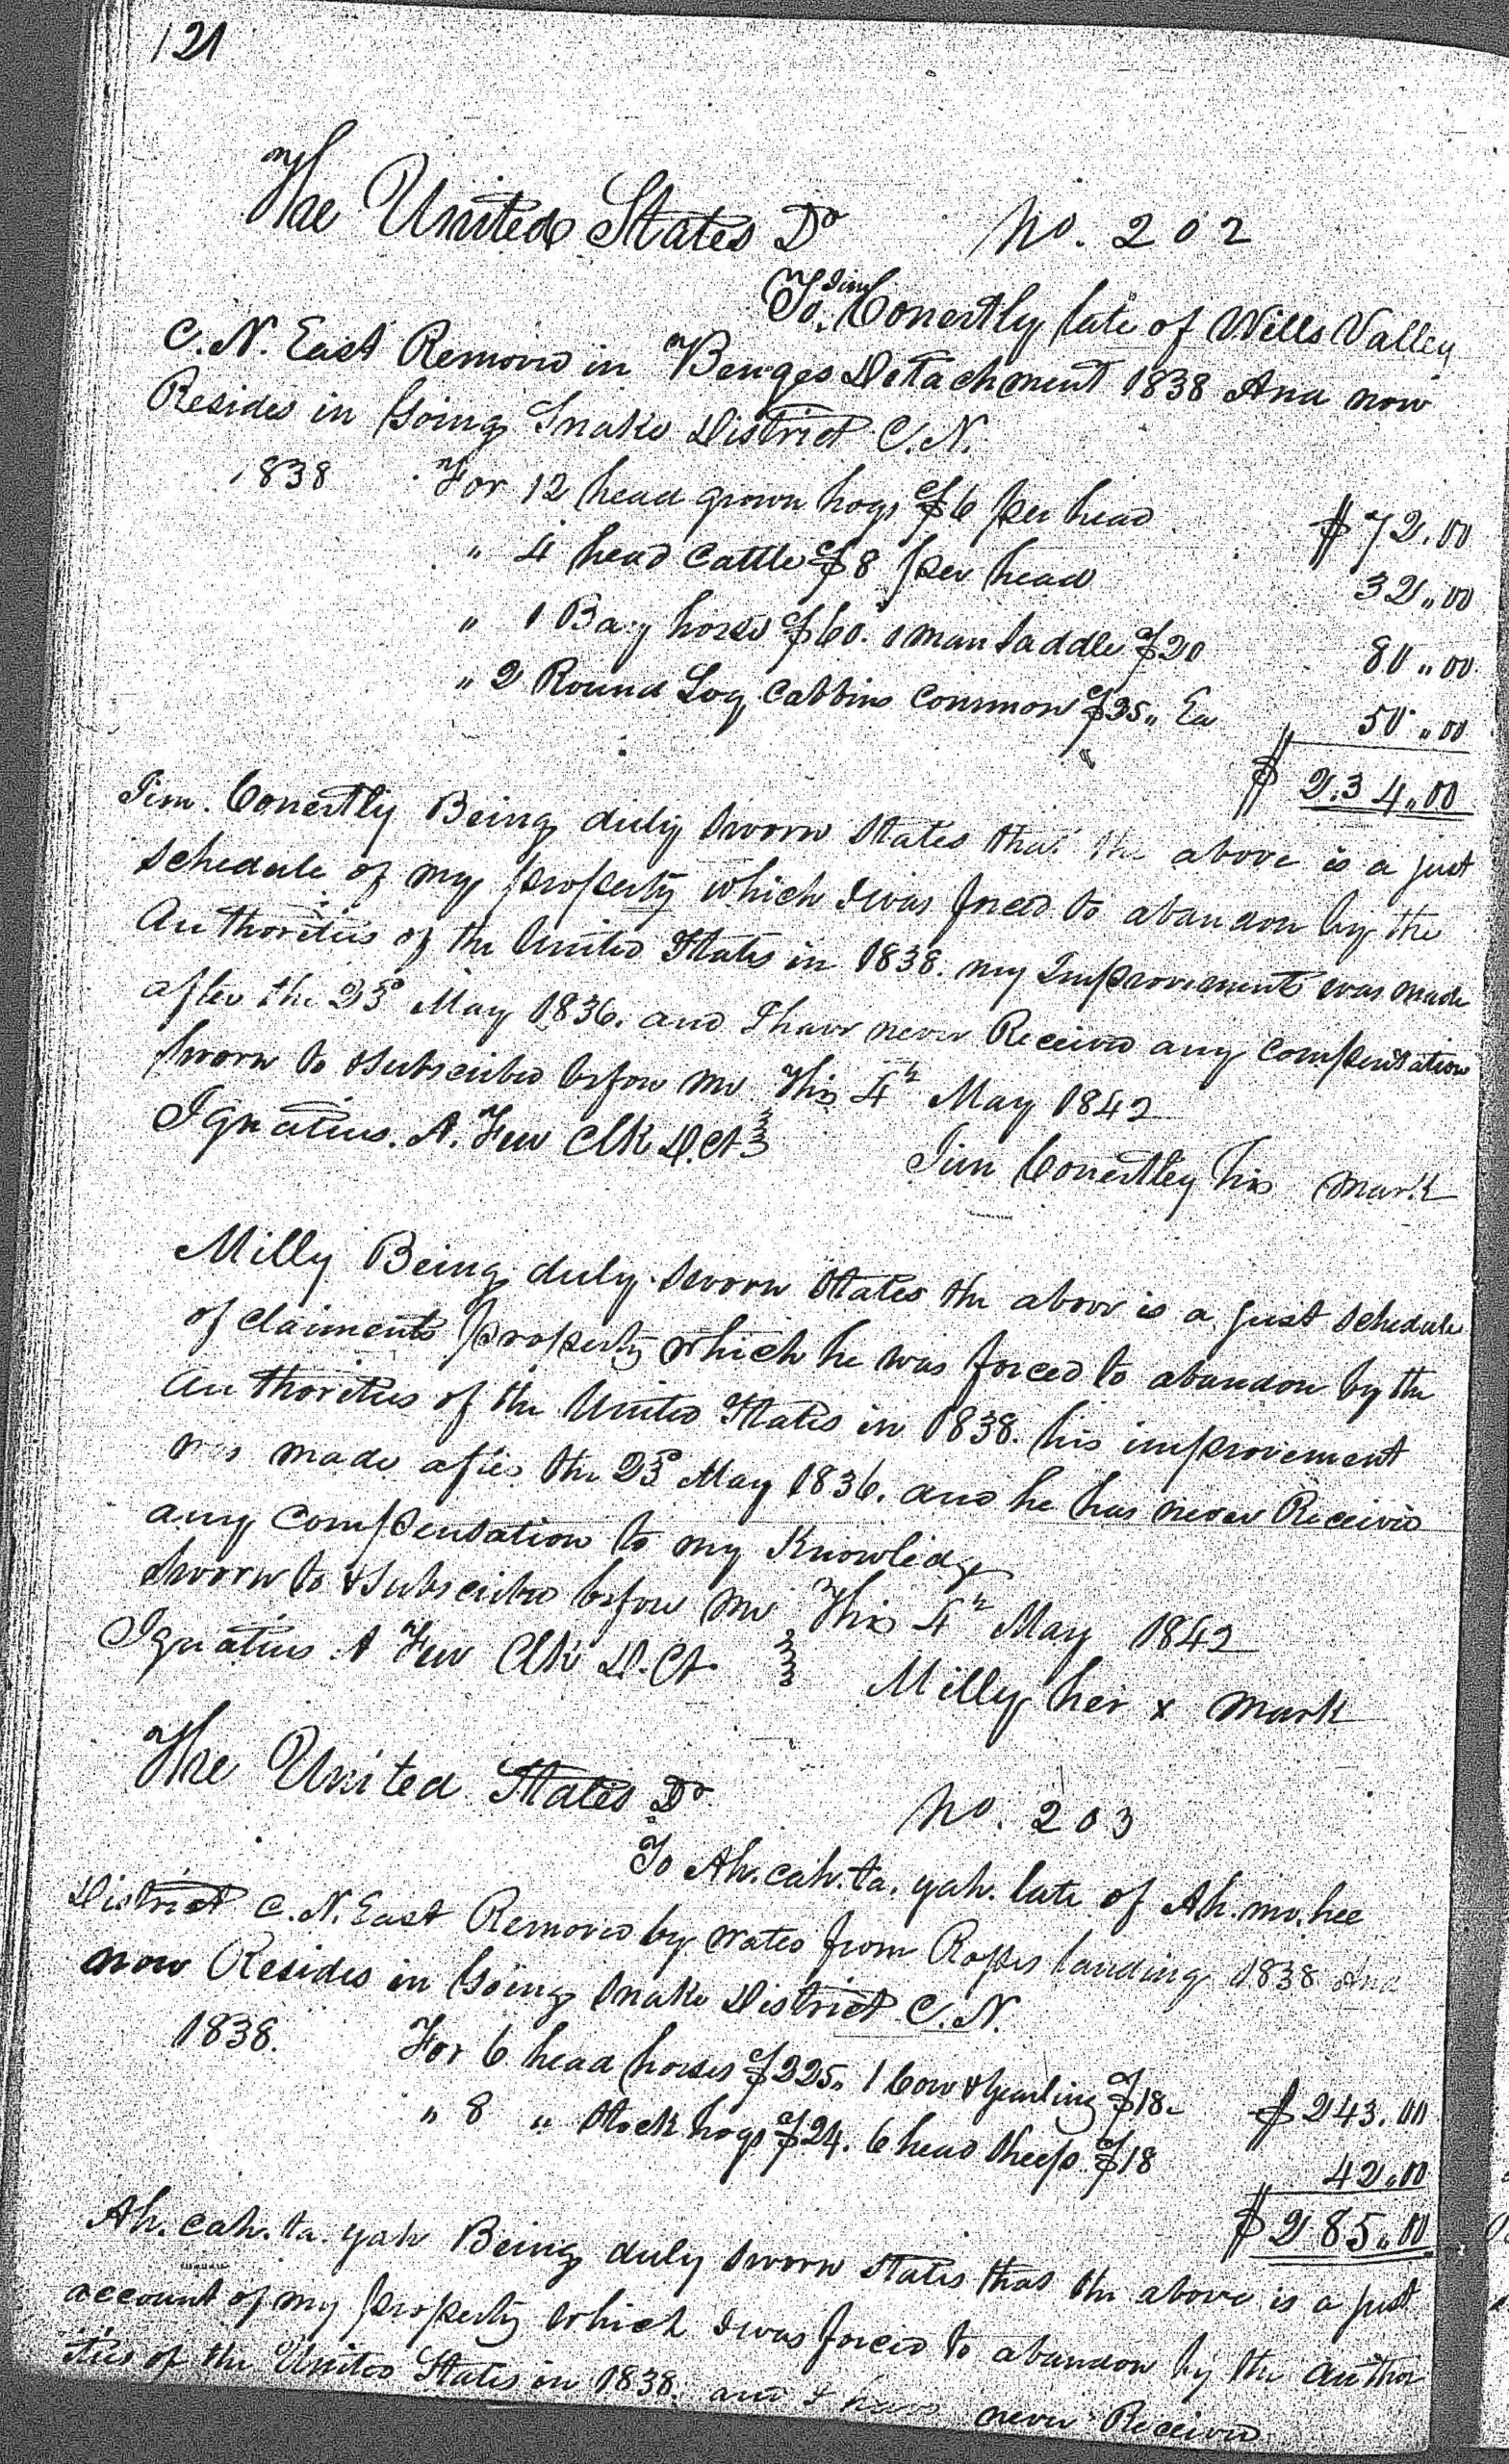 121
The United States Dr No. 202
To Jim Conertly late of Wills Valley
C. N. East Removed in Benges Detachment 1838 And now
Resides in Going Snake District C. N.
1838 For 12 head grown hogs $6 per head $72.00
" 4 head Cattle $8 per head 32.00
" 1 Bay horse $60. 1 man saddle $20 80.00
" 2 Round Log Cabbins Common $25 Ea 50.00
$ 234.00
Jim. Conertly Being duly sworn States that the above is a just
schedule of my property which I was forced to abandon by the
Authorities of the United States in 1838. my Improvements was made
after the 23d May 1836. and I have never Received any compensation
Sworn to & subscribed before me This 4th May 1842
Ignatius. A. Few Clk D. Ct
Jim Conertley his mark
Milly Being duly sworn States the above is a just schedule
of claiments property which he was forced to abandon by the
Authorities of the United States in 1838. his improvement
was made after the 23d May 1836. and he has never Received
any compensation to my Knowledge
Sworn to & subscribed before me This 4th May 1842
Ignatius. A Few Clk D. Ct
Milly her x mark
The United States Dr No. 203
To Ah. cah. ta. yah. late of Ah. mo. hee
District C. N. East Removed by water from Rosses landing 1838 And
now Resides in Going Snake District C. N.
1838. For 6 head horses $225. 1 Cow & Yearling $18. $243.00
" 8 " Stock hogs $24. 6 head sheep $18 42.00
$285.00
Ah. cah. ta. yah Being duly sworn States that the above is a just
account of my property which I was forced to abandon by the author
ities of the United States in 1838. and I have never Received